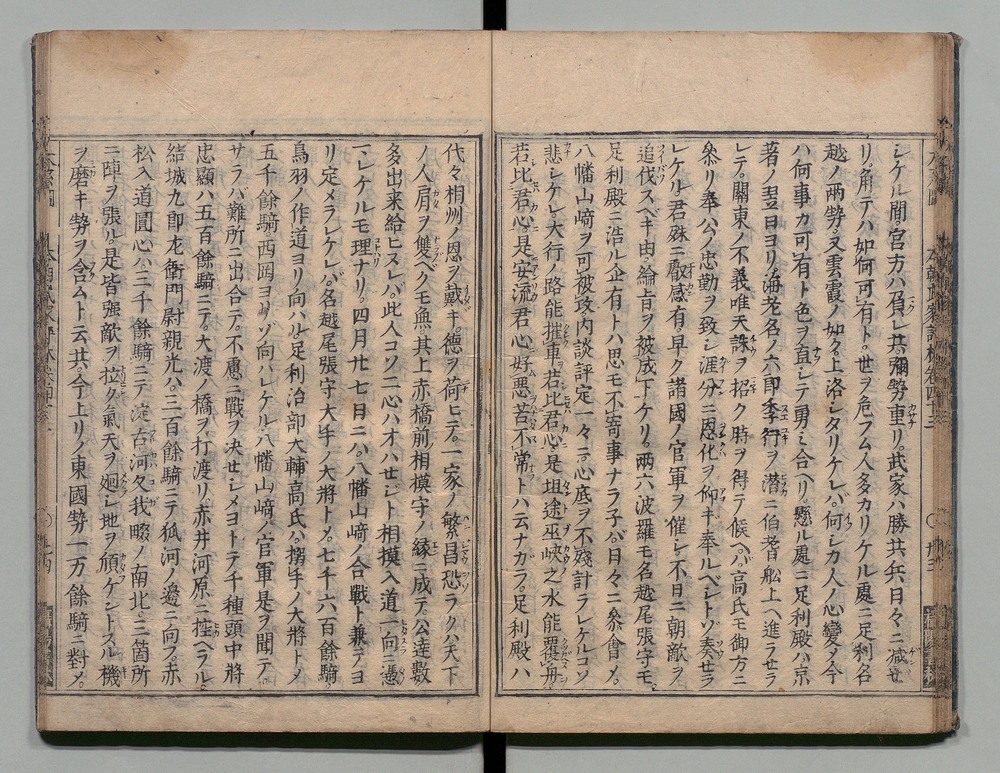 シケル間宮方ハ負レ共彌勢重リ武家ハ勝共兵日々ニ减セ
リ角テハ如何可有ト世ヲ危フム人多カリケル處ニ足利名
越ノ兩勢又雲霞ノ如ク上洛シタリケレバ何シカ人ノ心變々今
ハ何事カ可有ト色ヲ直シテ勇ミ合リ懸ル處ニ足利殿ハ京
著ノ翌日ヨリ海老名ノ六郎季行ヲ潜ニ伯耆船上ヘ進ラセラ
レテ關東ノ不義唯天誅ヲ招ク時ヲ得テ候ヘバ高氏モ御方ニ
參リ奉公ノ忠勤ヲ致シ涯分ニ恩化ヲ仰キ奉ルベシトゾ奏セラ
レケル君殊ニ叡感有早ク諸國ノ官軍ヲ催シ不日ニ朝敵ヲ
追伐スヘキ由綸旨ヲ被成下ケリ兩六波羅モ名越尾張守モ
足利殿ニ浩ル企有トハ思モ不寄事ナラ子バ日々ニ參會メ
八幡山﨑ヲ可被攻内談評定一々ニ心底ヲ不殘計ラレケルコソ
悲シケレ大行ノ路能摧車若比君心是坦途巫峽之水能覆舟
若比君心是安流君心好悪苦不常トハ云ナカラ足利殿ハ
代々相州ノ恩ヲ戴キ德ヲ荷ヒテ一家ノ繁昌恐ラクハ天下
ノ人肩ヲ雙ヘクモ無其上赤橋前相模守ノ縁ニ成テ公達數
多出来給ヒヌレバ此人コソ二心ハオハセジト相摸入道一向ニ憑
マレケルモ理ナリ四月廿七日ニハ八幡山﨑ノ合戰ト兼テヨ
リ定メラレケレバ名越尾張守大手ノ大將トメ七千六百餘騎
鳥羽ノ作道ヨリ向ハル足利治部大輔高氏ハ搦手ノ大將トメ
五千餘騎西岡ヨリゾ向ハレケル八幡山﨑ノ官軍是ヲ聞テ
サラバ難所ニ出合テ不慮ニ戰ヲ决セシメヨトテ千種頭中將
忠顯ハ五百餘騎ニテ大渡ノ橋ヲ打渡リ赤井河原ニ控ヘラル
結城九郎左衛門尉親光ハ三百餘騎ニテ狐河ノ邊ニ向フ赤
松入道圓心ハ三千餘騎ニテ淀古河久我畷ノ南北ニ三箇所
ニ陣ヲ張ル是皆强敵ヲ拉ク氣天ヲ廻シ地ヲ傾ケントスル機
ヲ磨キ勢ヲ含ムト云共今上リノ東國勢一万餘騎ニ對メ